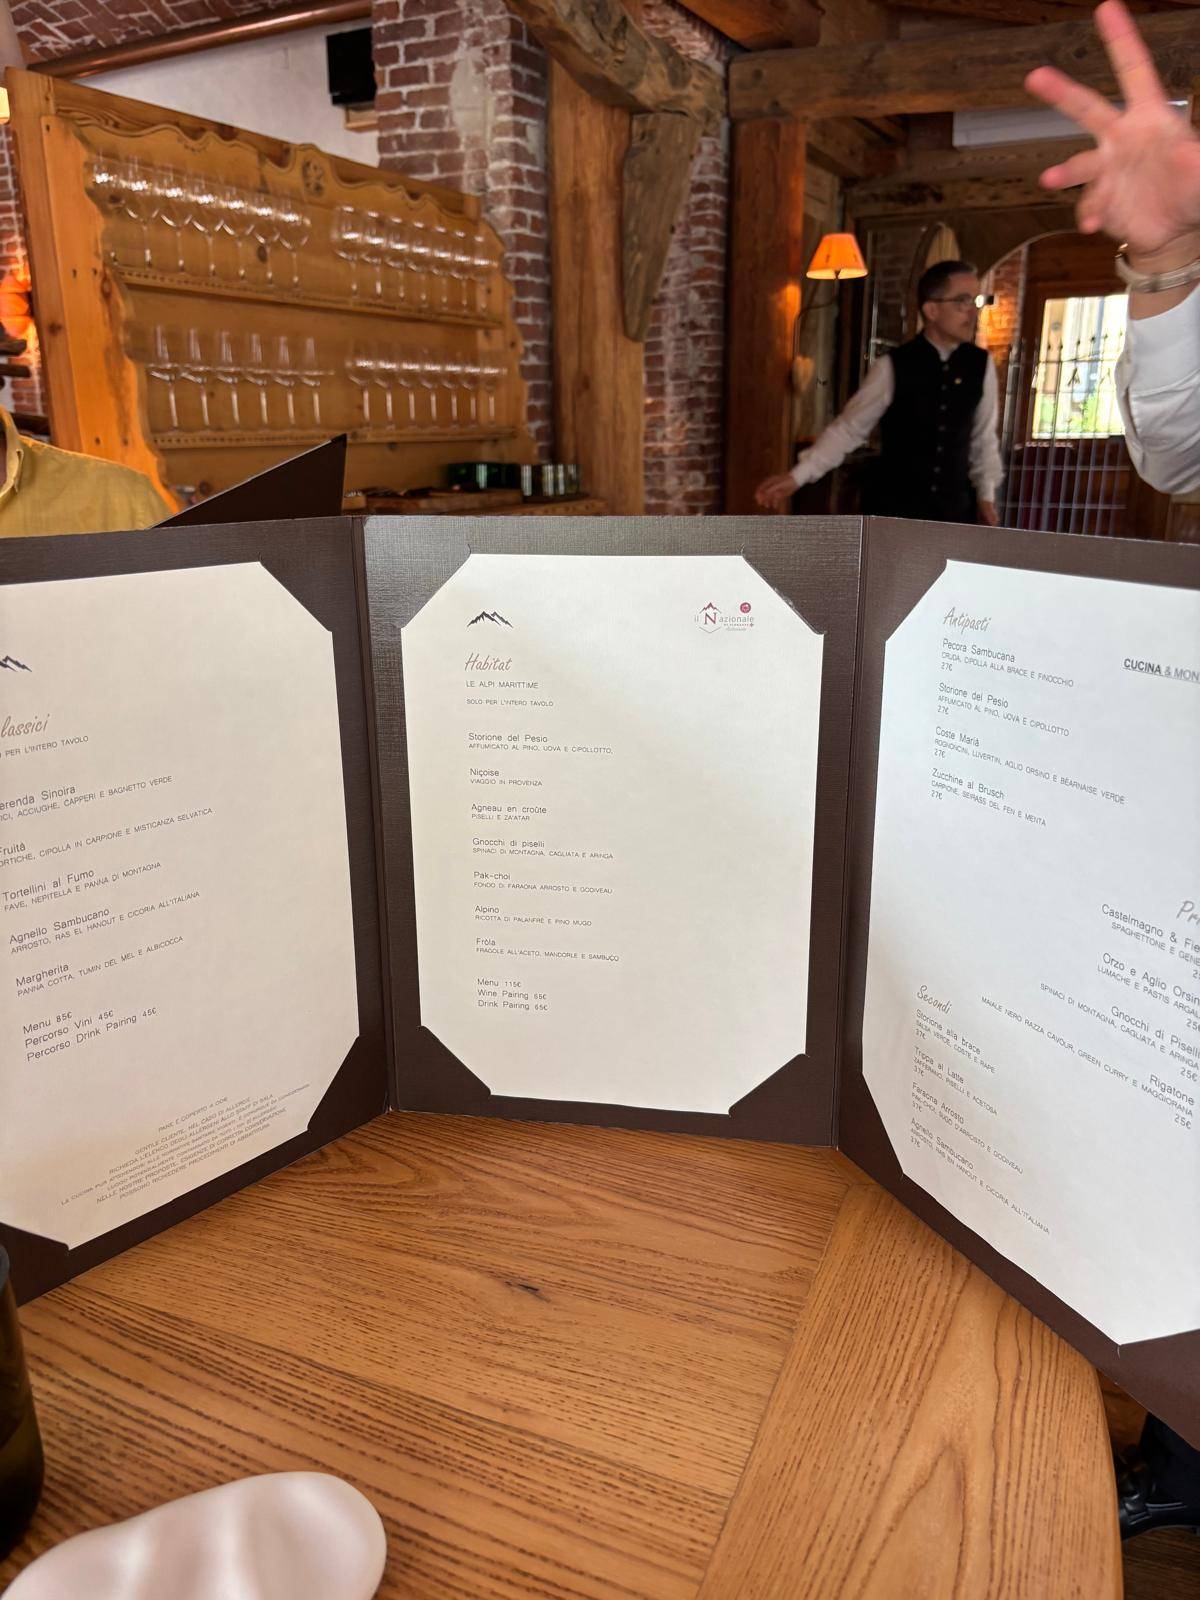 lassici
PER L'INTERO TAVOLO
erenda Sinoira
ICI, ACCIUGHE, CAPPERI E BAGNETTO VERDE
Fruità
ORTICHE, CIPOLLA IN CARPIONE E MISTICANZA SELVATICA
Tortellini al Fumo
FAVE, NEPITELLA E PANNA DI MONTAGNA
Agnello Sambucano
ARROSTO, RAS EL HANOUT E CICORIA ALL'ITALIANA
Margherita
PANNA COTTA, TUMIN DEL MEL E ALBICOCCA
Menu 85€
Percorso Vini 45€
Percorso Drink Pairing 45€
PANE E COPERTO 4.00€
GENTILE CLIENTE, NEL CASO DI ALLERGIE,
RICHIEDA L'ELENCO DEGLI ALLERGENI ALLO STAFF DI SALA.
NELLE NOSTRE PROPOSTE, ESIGENZE DI CORRETTA CONSERVAZIONE
POSSONO RICHIEDERE PROCEDIMENTI DI ABBATTITURA
il Nazionale
Habitat
LE ALPI MARITTIME
SOLO PER L'INTERO TAVOLO
Storione del Pesio
AFFUMICATO AL PINO, UOVA E CIPOLLOTTO,
Niçoise
VIAGGIO IN PROVENZA
Agneau en croûte
PISELLI E ZA'ATAR
Gnocchi di piselli
SPINACI DI MONTAGNA, CAGLIATA E ARINGA
Pak-choi
FONDO DI FARAONA ARROSTO E GODIVEAU
Alpino
RICOTTA DI PALANFRÈ E PINO MUGO
Fröla
FRAGOLE ALL'ACETO, MANDORLE E SAMBUCO
Menu 115€
Wine Pairing 65€
Drink Pairing 65€
Antipasti
CUCINA & MON
Pecora Sambucana
CRUDA, CIPOLLA ALLA BRACE E FINOCCHIO
27€
Storione del Pesio
AFFUMICATO AL PINO, UOVA E CIPOLLOTTO
27€
Coste Marià
ROGNONCINI, LUVERTIN, AGLIO ORSINO E BÉARNAISE VERDE
27€
Zucchine al Brusch
CARPIONE, SEIRASS DEL FEN E MENTA
27€
Pr
Castelmagno & Fie
SPAGHETTONE E GENE
Orzo e Aglio Orsin
LUMACHE E PASTIS ARGAL
25€
Gnocchi di Piselli
SPINACI DI MONTAGNA, CAGLIATA E ARINGA
25€
Rigatone
MAIALE NERO RAZZA CAVOUR, GREEN CURRY E MAGGIORANA
25€
Secondi
Storione alla brace
SALSA VERDE, COSTE E RAPE
37€
Trippa al Latte
ZAFFERANO, PISELLI E ACETOSA
37€
Faraona Arrosto
PAK-CHOI, SUGO D'ARROSTO E GODIVEAU
37€
Agnello Sambucano
ARROSTO, RAS EN HANOUT E CICORIA ALL'ITALIANA
37€